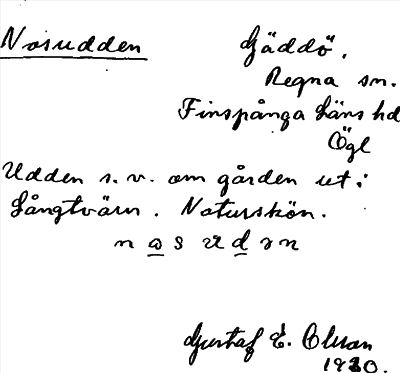 Nosudden
Gäddö.
Regna sn.
Finspånga Läns hd
Ögl
Udden s.v. om gården ut i
Långtvärn. Naturskön.
n o s u d ə n
Gustaf E. Olsson
1930.